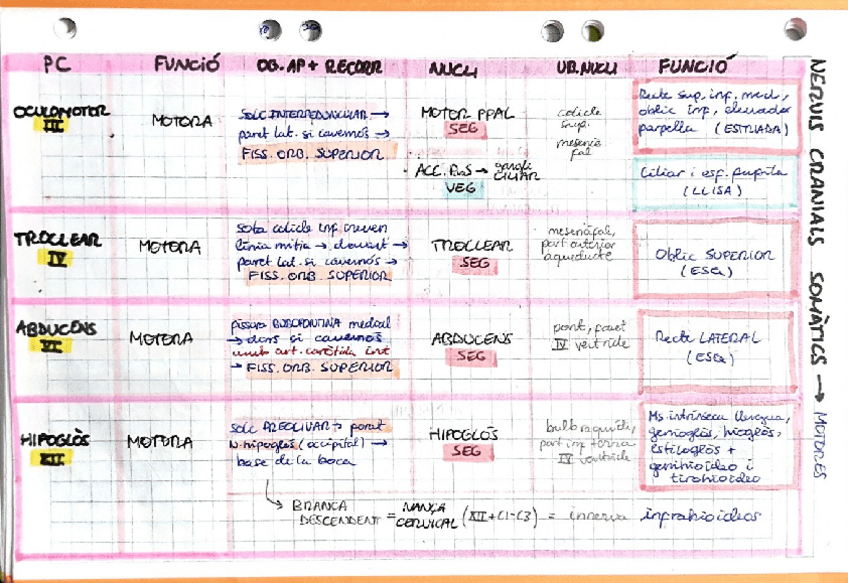 PC FUNCIÓ OB.AP + RECORR NUCLI UB.NUCLI FUNCIÓ
OCULOMOTOR
III
MOTORA
SOLC INTERPEDUNCULAR →
paret lat. si cavernós →
FISS. ORB. SUPERIOR
MOTOR PPAL
SEG
ACC. PaS → gangli
CILIAR
VEG
colicle
sup.
mesencè
fal
Recte sup, inf, med,
oblic inf, elevador
parpella (ESTRIADA)
Ciliar i esf. pupila
(LLISA)
TROCLEAR
IV
MOTORA
sota colicle inf creuen
línia mitja → davant →
paret lat. si cavernós →
FISS. ORB. SUPERIOR
TROCLEAR
SEG
mesencèfal,
part anterior
aqüeducte
Oblic SUPERIOR
(ESQ)
ABDUCENS
VI
MOTORA
fissura BULBOPONTINA medial
→ dins si cavernós
amb art. caròtida int
→ FISS. ORB. SUPERIOR
ABDUCENS
SEG
pont, paret
IV ventricle
Recte LATERAL
(ESQ)
HIPOGLÒS
XII
MOTORA
solc PREOLIVAR → foràt
N. hipoglòs (occipital) →
base de la boca
HIPOGLÒS
SEG
bulb raquidi,
part inf terra
IV ventricle
Ms intrínseca llengua,
genioglòs, hioglòs,
estiloglòs +
genihioideo i
tirohioideo
→ BRANCA
DESCENDENT = NANÇA
CERVICAL (XII + C1-C3) = innerva infrahioideos
NERVIS CRANIALS SOMÀTICS → MOTORES